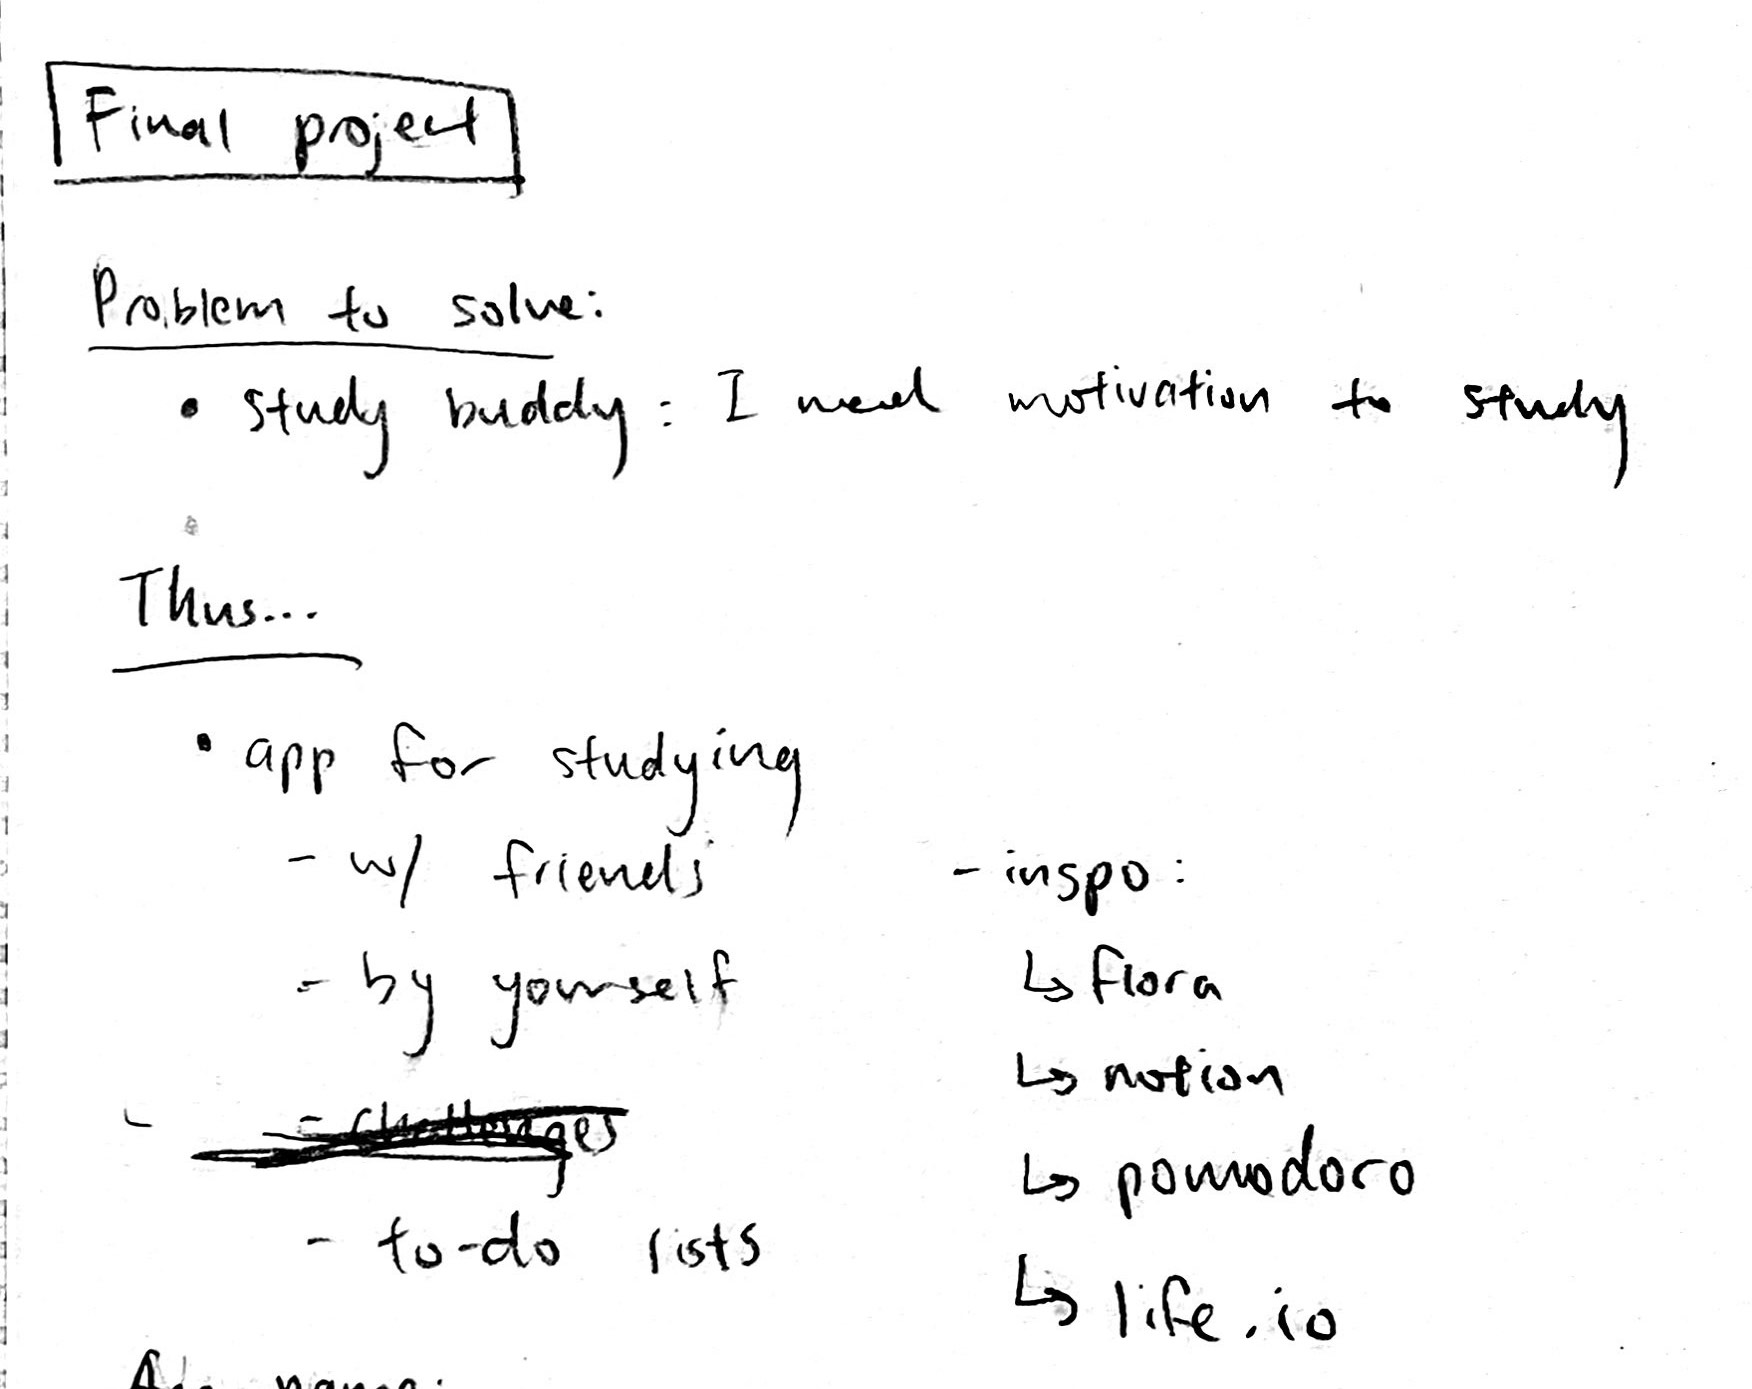 Final project
Problem to solve:
• study buddy: I need motivation to study
Thus...
• app for studying
- w/ friends
- by yourself
- challenges
- to-do lists
- inspo:
↳ flora
↳ notion
↳ pomodoro
↳ life.io
App name: